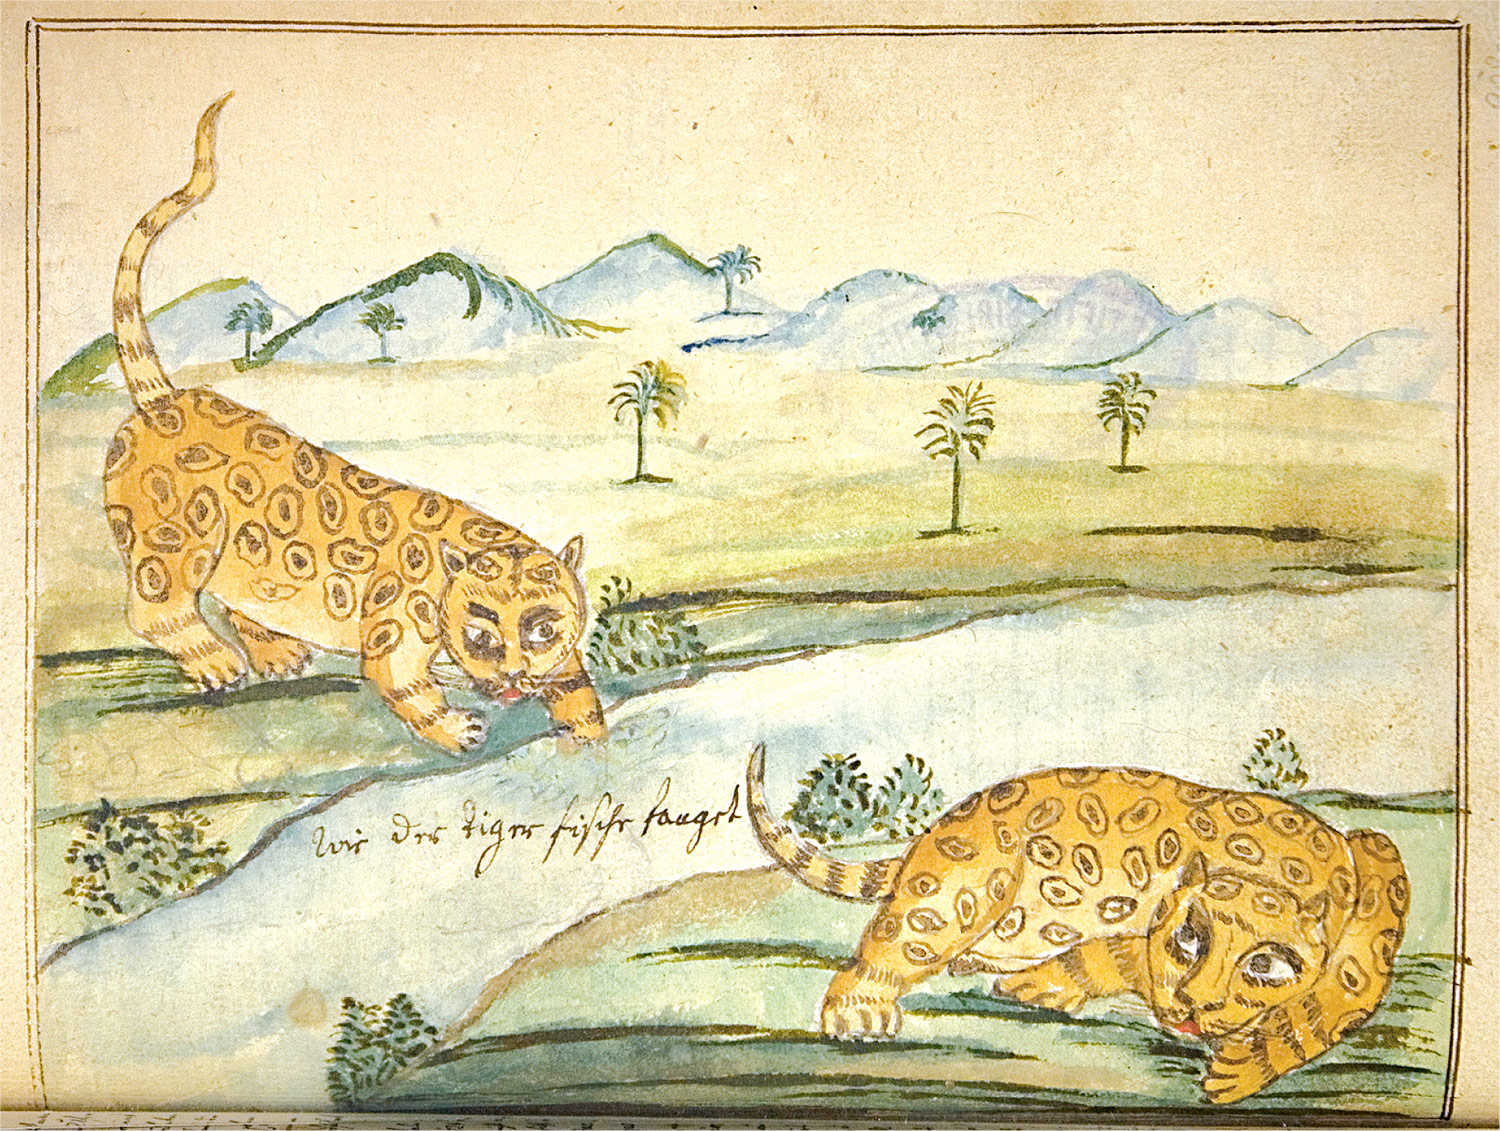 wie der tiger fische fanget